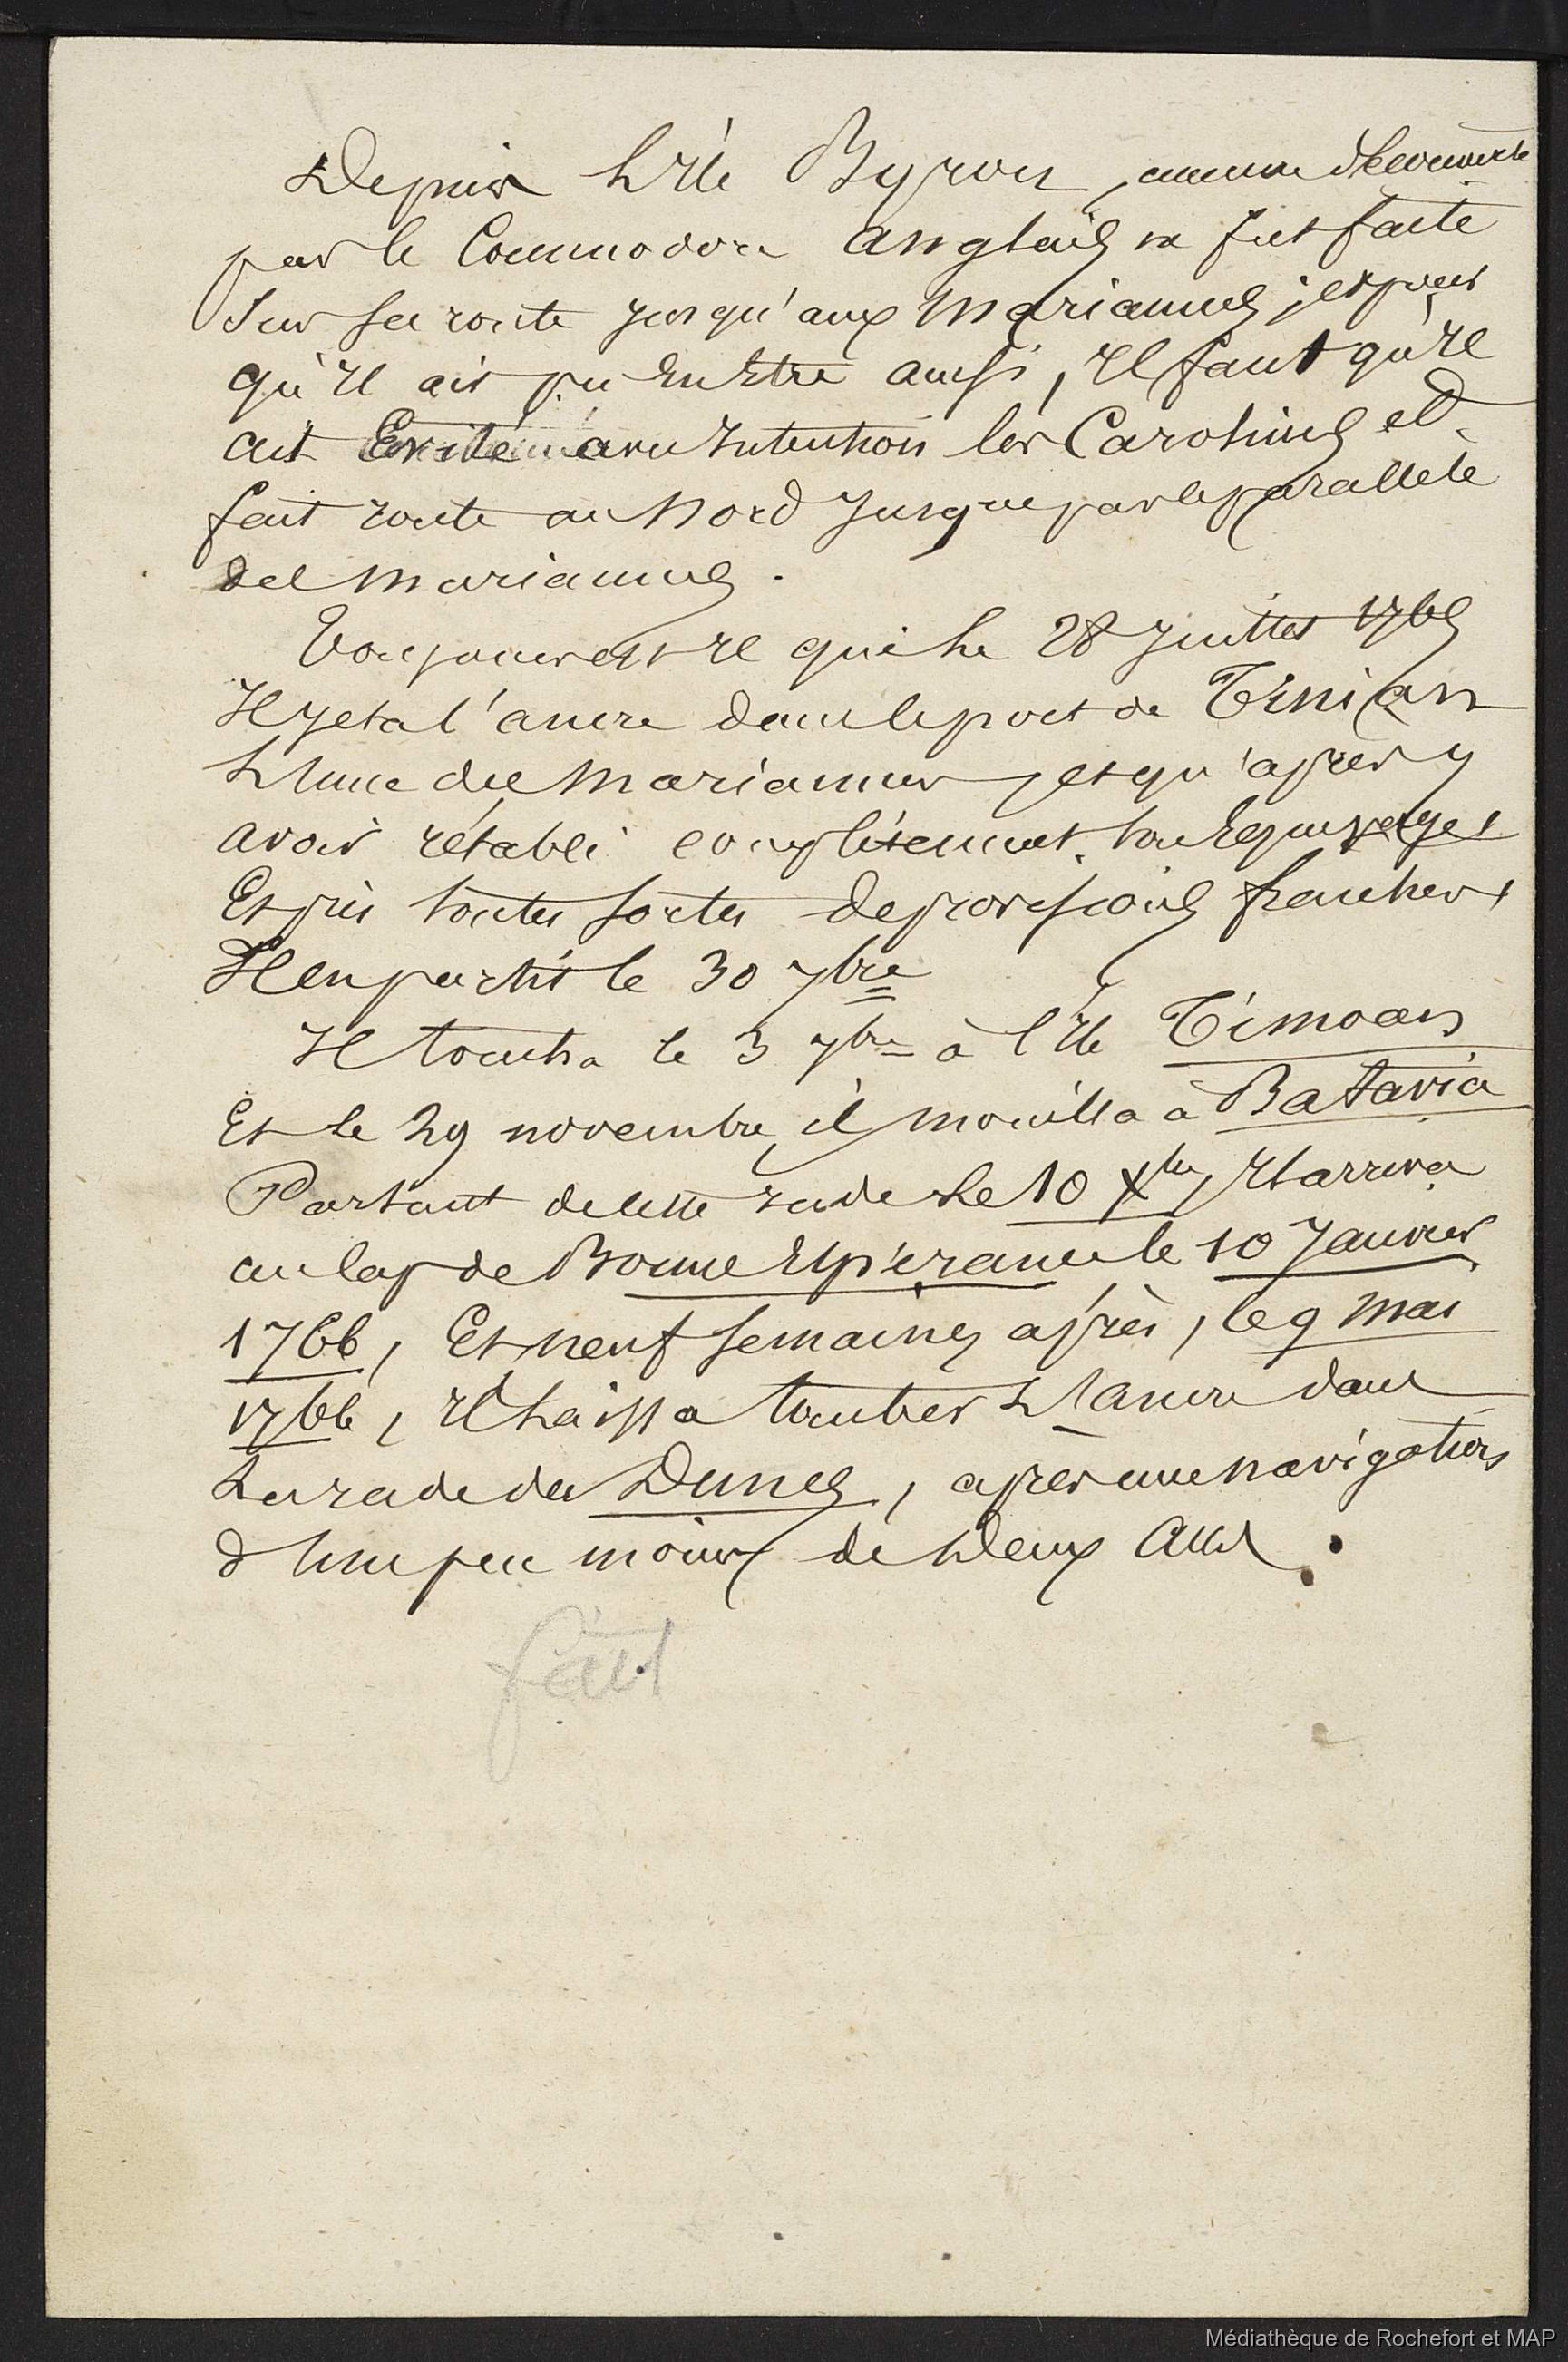 Depuis L'Ile Byron, aucune découverte
par le Commodore anglais ne fut faite
Sur sa route Jusqu'aux Mariannes ; et pour
qu'Il ait pu En Etre ainsi, Il faut qu'Il
ait Evité avec Intention les Carolines et
fait route au Nord Jusque par le parallèle
des Mariannes.
Toujours est Il que le 28 Juillet 1765
Il Jeta l'ancre dans le port de Tinian
L'Une des Mariannes, et qu'après y
avoir rétabli complétement son Equipage,
Et pris toutes sortes de provisions fraiches,
Il en partit le 30 7bre
Il toucha le 3 9bre à l'Ile Timoan
Et le 29 novembre, il mouilla à Batavia
Partant de cette rade Le 10 Xbre, Il arriva
au Cap de Bonne Espérance le 10 Janvier
1766, Et neuf Semaines après, le 9 Mai
1766, Il Laissa tomber L'ancre dans
La rade des Dunes, après une navigation
d'Un peu moins de Deux Ans.
fait
Médiathèque de Rochefort et MAP